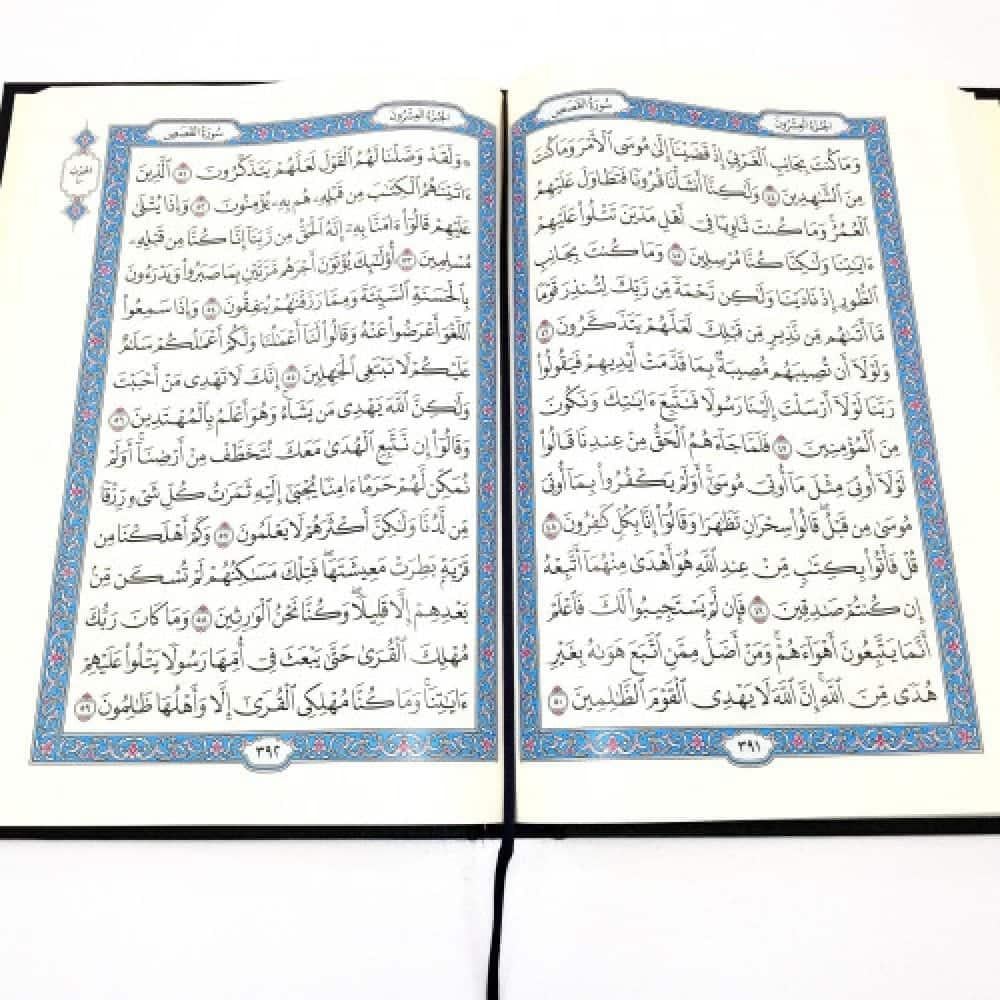 الجزء العشرون
سورة القصص
وَمَا كُنتَ بِجَانِبِ ٱلْغَرْبِيِّ إِذْ قَضَيْنَآ إِلَىٰ مُوسَى ٱلْأَمْرَ وَمَا كُنتَ
مِنَ ٱلشَّٰهِدِينَ ٤٤ وَلَٰكِنَّآ أَنشَأْنَا قُرُونًا فَتَطَاوَلَ عَلَيْهِمُ
ٱلْعُمُرُ ۚ وَمَا كُنتَ ثَاوِيًا فِىٓ أَهْلِ مَدْيَنَ تَتْلُوا۟ عَلَيْهِمْ
ءَايَٰتِنَا وَلَٰكِنَّا كُنَّا مُرْسِلِينَ ٤٥ وَمَا كُنتَ بِجَانِبِ
ٱلطُّورِ إِذْ نَادَيْنَا وَلَٰكِن رَّحْمَةً مِّن رَّبِّكَ لِتُنذِرَ قَوْمًا
مَّآ أَتَىٰهُم مِّن نَّذِيرٍ مِّن قَبْلِكَ لَعَلَّهُمْ يَتَذَكَّرُونَ ٤٦
وَلَوْلَآ أَن تُصِيبَهُم مُّصِيبَةٌۢ بِمَا قَدَّمَتْ أَيْدِيهِمْ فَيَقُولُوا۟
رَبَّنَا لَوْلَآ أَرْسَلْتَ إِلَيْنَا رَسُولًا فَنَتَّبِعَ ءَايَٰتِكَ وَنَكُونَ
مِنَ ٱلْمُؤْمِنِينَ ٤٧ فَلَمَّا جَآءَهُمُ ٱلْحَقُّ مِنْ عِندِنَا قَالُوا۟
لَوْلَآ أُوتِىَ مِثْلَ مَآ أُوتِىَ مُوسَىٰٓ ۚ أَوَلَمْ يَكْفُرُوا۟ بِمَآ أُوتِىَ
مُوسَىٰ مِن قَبْلُ ۖ قَالُوا۟ سِحْرَانِ تَظَٰهَرَا وَقَالُوٓا۟ إِنَّا بِكُلٍّ كَٰفِرُونَ ٤٨
قُلْ فَأْتُوا۟ بِكِتَٰبٍ مِّنْ عِندِ ٱللَّهِ هُوَ أَهْدَىٰ مِنْهُمَآ أَتَّبِعْهُ
إِن كُنتُمْ صَٰدِقِينَ ٤٩ فَإِن لَّمْ يَسْتَجِيبُوا۟ لَكَ فَٱعْلَمْ
أَنَّمَا يَتَّبِعُونَ أَهْوَآءَهُمْ ۚ وَمَنْ أَضَلُّ مِمَّنِ ٱتَّبَعَ هَوَىٰهُ بِغَيْرِ
هُدًى مِّنَ ٱللَّهِ ۚ إِنَّ ٱللَّهَ لَا يَهْدِى ٱلْقَوْمَ ٱلظَّٰلِمِينَ ٥٠
٣٩١
الجزء العشرون
سورة القصص
الحزب
۞ وَلَقَدْ وَصَّلْنَا لَهُمُ ٱلْقَوْلَ لَعَلَّهُمْ يَتَذَكَّرُونَ ٥١ ٱلَّذِينَ
ءَاتَيْنَٰهُمُ ٱلْكِتَٰبَ مِن قَبْلِهِۦ هُم بِهِۦ يُؤْمِنُونَ ٥٢ وَإِذَا يُتْلَىٰ
عَلَيْهِمْ قَالُوٓا۟ ءَامَنَّا بِهِۦٓ إِنَّهُ ٱلْحَقُّ مِن رَّبِّنَآ إِنَّا كُنَّا مِن قَبْلِهِۦ
مُسْلِمِينَ ٥٣ أُو۟لَٰٓئِكَ يُؤْتَوْنَ أَجْرَهُم مَّرَّتَيْنِ بِمَا صَبَرُوا۟ وَيَدْرَءُونَ
بِٱلْحَسَنَةِ ٱلسَّيِّئَةَ وَمِمَّا رَزَقْنَٰهُمْ يُنفِقُونَ ٥٤ وَإِذَا سَمِعُوا۟
ٱللَّغْوَ أَعْرَضُوا۟ عَنْهُ وَقَالُوا۟ لَنَآ أَعْمَٰلُنَا وَلَكُمْ أَعْمَٰلُكُمْ سَلَٰمٌ
عَلَيْكُمْ لَا نَبْتَغِى ٱلْجَٰهِلِينَ ٥٥ إِنَّكَ لَا تَهْدِى مَنْ أَحْبَبْتَ
وَلَٰكِنَّ ٱللَّهَ يَهْدِى مَن يَشَآءُ ۚ وَهُوَ أَعْلَمُ بِٱلْمُهْتَدِينَ ٥٦
وَقَالُوٓا۟ إِن نَّتَّبِعِ ٱلْهُدَىٰ مَعَكَ نُتَخَطَّفْ مِنْ أَرْضِنَآ ۚ أَوَلَمْ
نُمَكِّن لَّهُمْ حَرَمًا ءَامِنًا يُجْبَىٰٓ إِلَيْهِ ثَمَرَٰتُ كُلِّ شَىْءٍ رِّزْقًا
مِّن لَّدُنَّا وَلَٰكِنَّ أَكْثَرَهُمْ لَا يَعْلَمُونَ ٥٧ وَكَمْ أَهْلَكْنَا مِن
قَرْيَةٍۭ بَطِرَتْ مَعِيشَتَهَا ۖ فَتِلْكَ مَسَٰكِنُهُمْ لَمْ تُسْكَن مِّنۢ
بَعْدِهِمْ إِلَّا قَلِيلًا ۖ وَكُنَّا نَحْنُ ٱلْوَٰرِثِينَ ٥٨ وَمَا كَانَ رَبُّكَ
مُهْلِكَ ٱلْقُرَىٰ حَتَّىٰ يَبْعَثَ فِىٓ أُمِّهَا رَسُولًا يَتْلُوا۟ عَلَيْهِمْ
ءَايَٰتِنَا ۚ وَمَا كُنَّا مُهْلِكِى ٱلْقُرَىٰٓ إِلَّا وَأَهْلُهَا ظَٰلِمُونَ ٥٩
٣٩٢